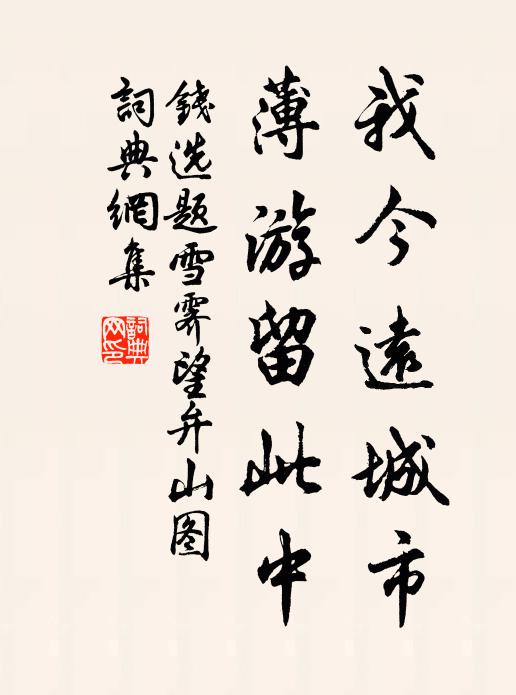 我今遠城市
薄游留此中
錢选題雪霽望弁山图
詞典網集
詞典網印